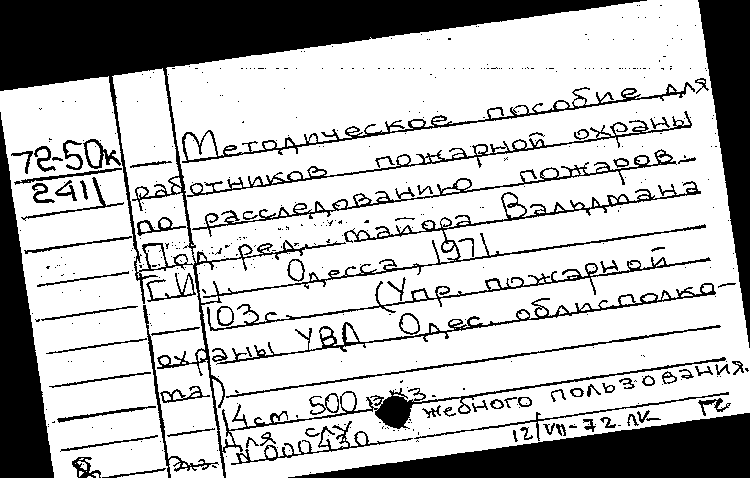 72-50к
2411
Методическое пособие для
работников пожарной охраны
по расследованию пожаров.
Под ред. майора Вальдмана
Г.И. Одесса, 1971.
103 с. (Упр. пожарной
охраны УВД Одес. облисполко-
ма).
14 ст. 500 экз.
Для слу жебного пользования.
Экз. N 000430
12/VII-72 ЛК